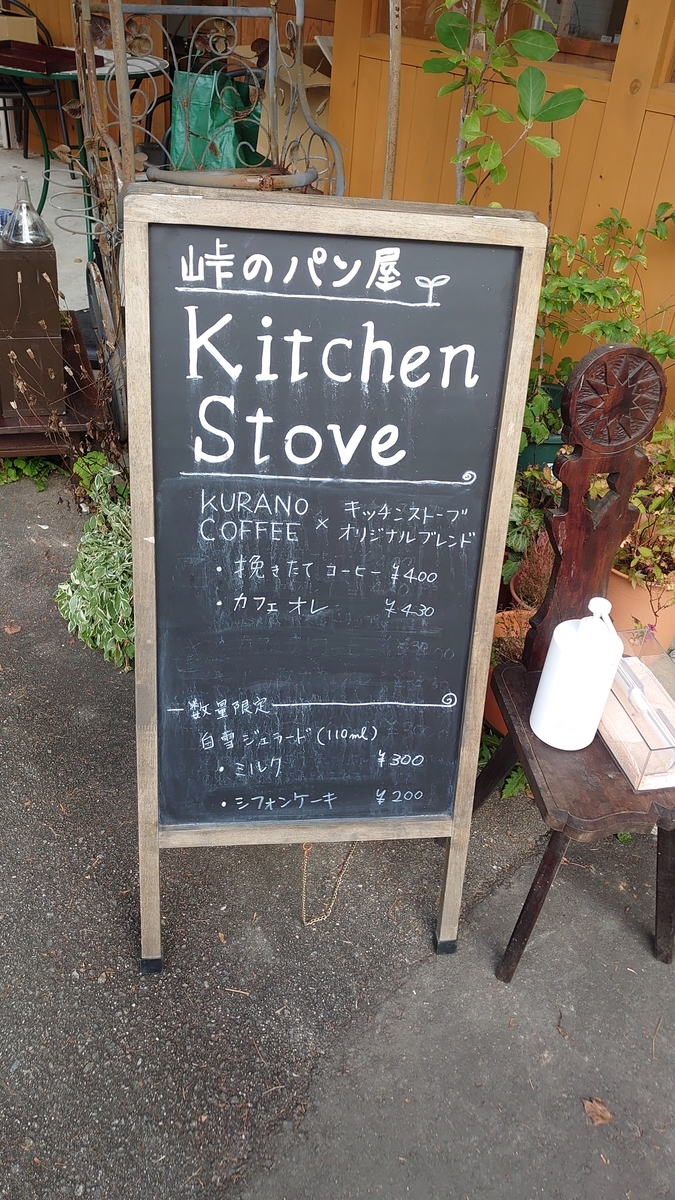 峠のパン屋
Kitchen
Stove
KURANO
COFFEE
×
キッチンストーブ
オリジナルブレンド
・挽きたてコーヒー ¥400
・カフェオレ ¥430
数量限定
白雪ジェラード(110ml)
・ミルク ¥300
・シフォンケーキ ¥200